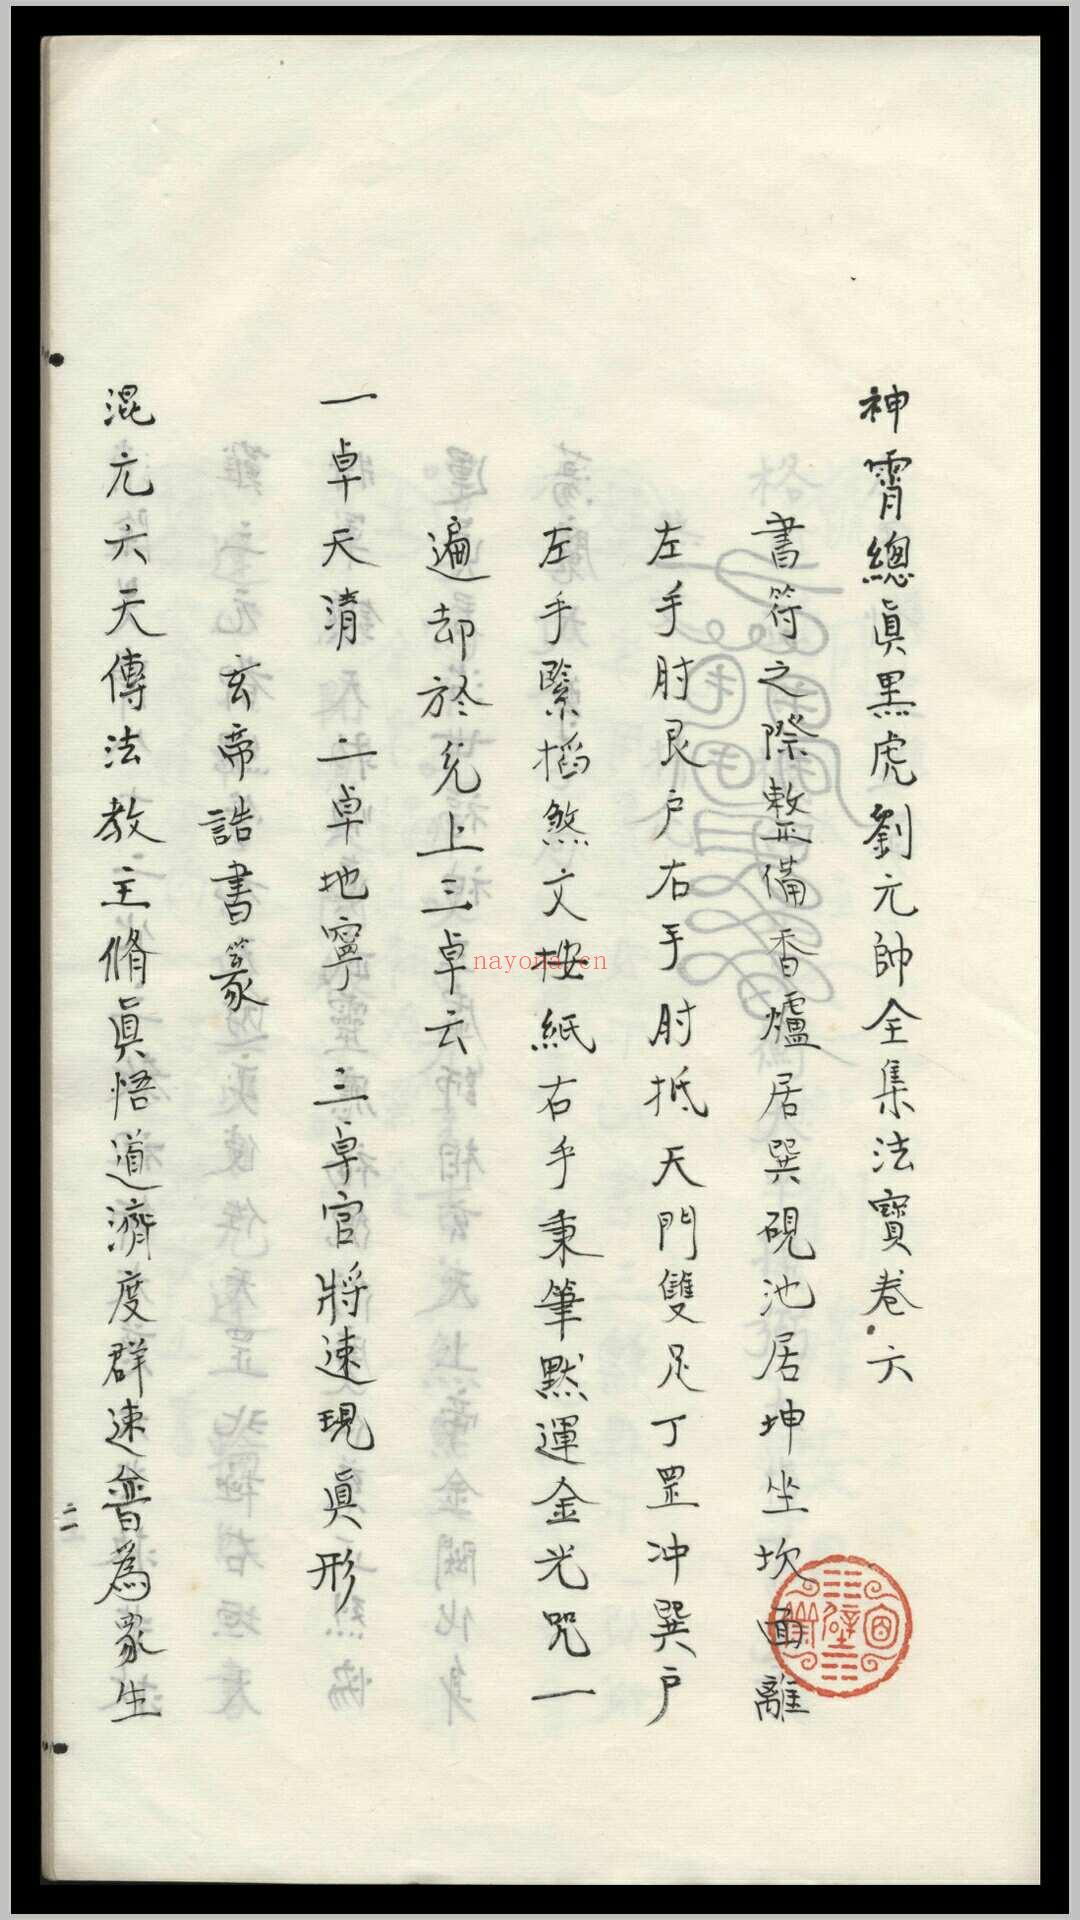 神霄總眞黑虎劉元帥全集法寶卷六
書符之際整備香爐居巽硯池居坤坐坎面離
左手肘艮户右手肘抵天門雙足丁罡冲巽户
左手緊搯煞文按紙右手秉筆默運金光咒一
遍却於炁上三卓云
一卓天清二卓地寧三卓官將速現眞形
玄帝誥書篆
混元六天傳法教主脩眞悟道濟度群迷普為眾生
二
nayona.cn